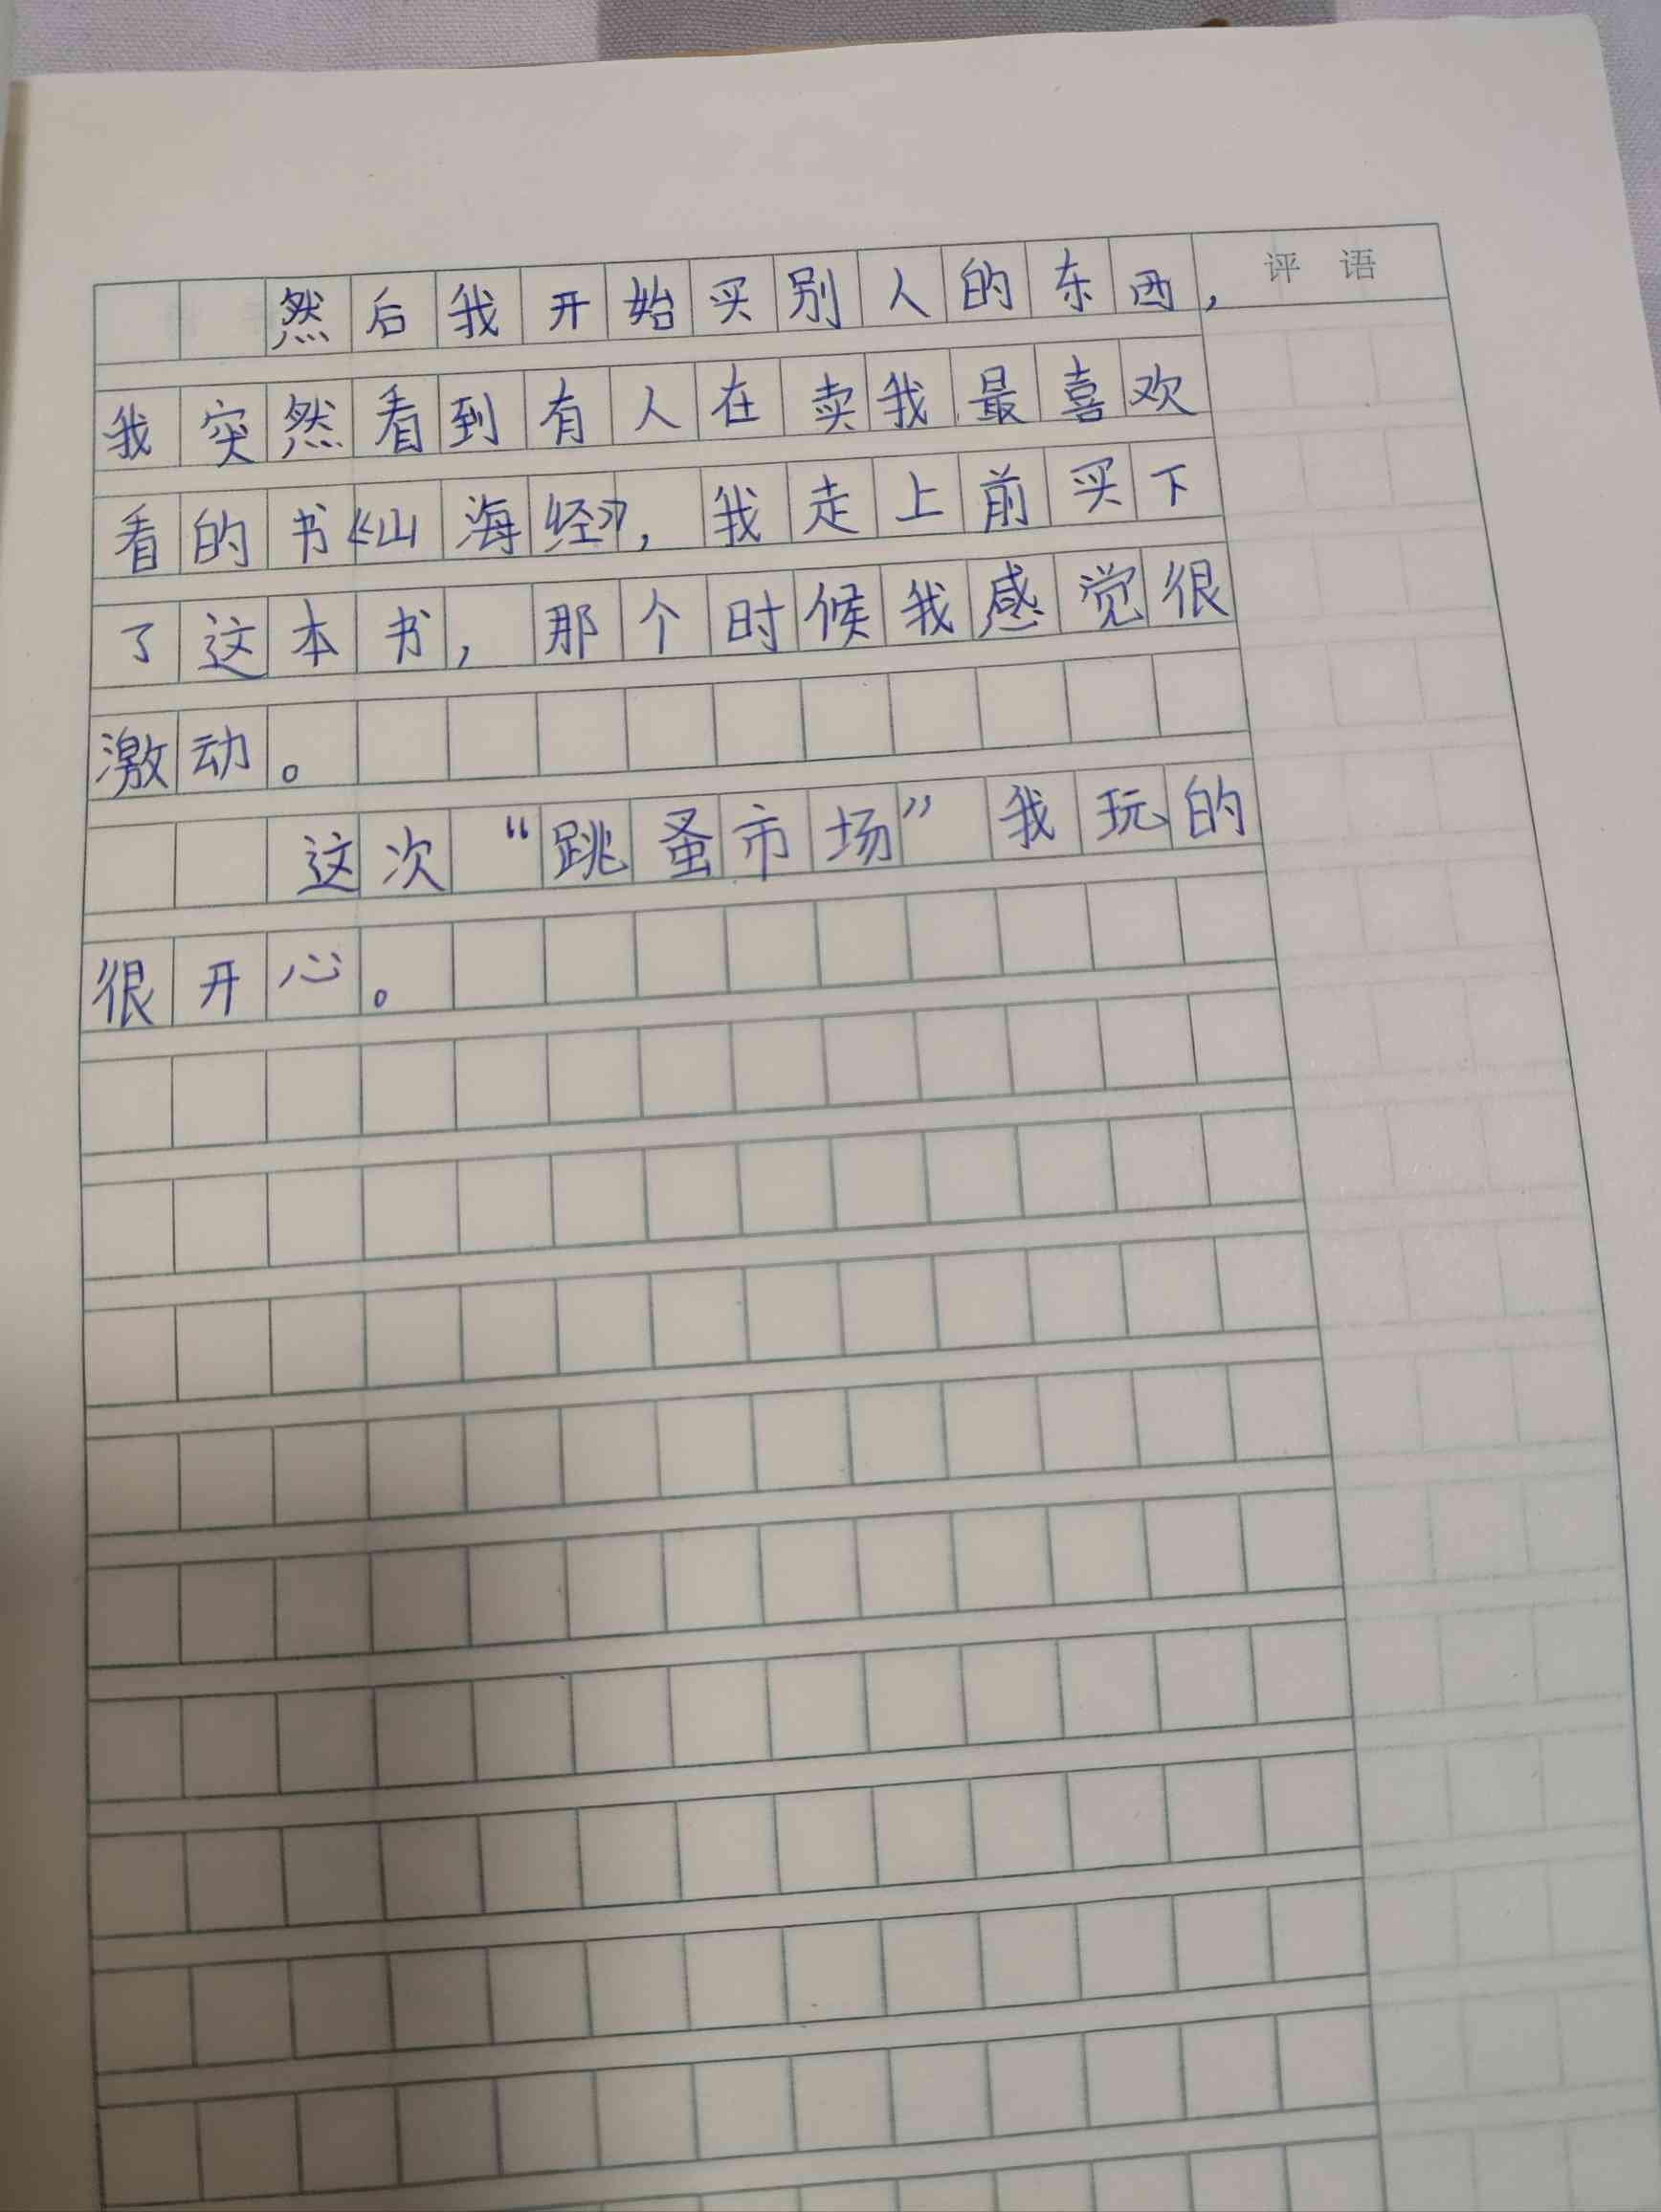 然后我开始买别人的东西，
评 语
我突然看到有人在卖我最喜欢
看的书《山海经》，我走上前买下
了这本书，那个时候我感觉很
激动。
这次“跳蚤市场”我玩的
很开心。